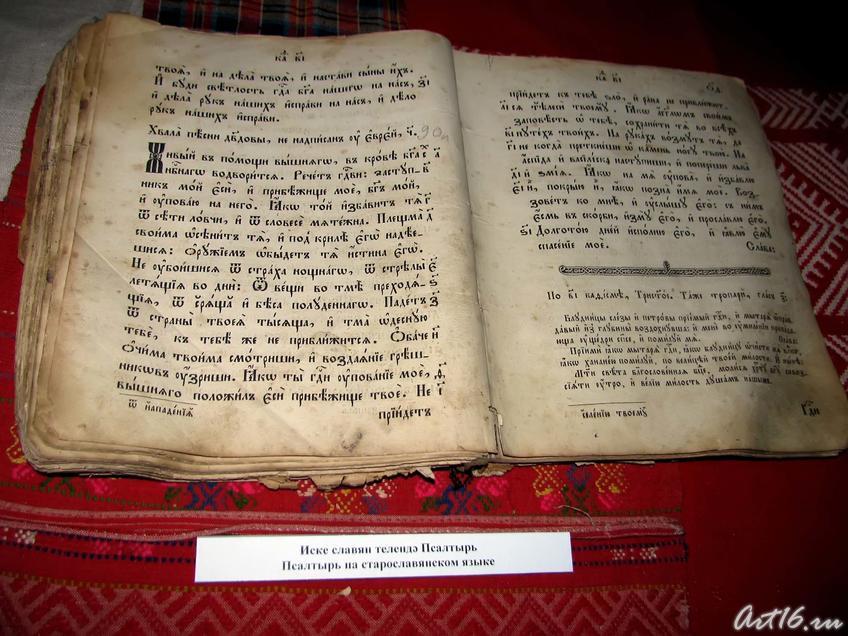 твоѧ̀, и҆ на дѣла̀ твоѧ̀, и҆ наста́ви сы́ны и҆́хъ.
И҆ бꙋ́ди свѣ́тлость гдⷭ҇а бг҃а на́шегѡ на на́съ,
и҆ дѣла̀ рꙋ́къ на́шихъ и҆спра́ви на на́съ, и҆ дѣ́ло
рꙋ́къ на́шихъ и҆спра́ви.
Хвала̀ пѣ́сни дв҃довы, не надпи́санъ ᲂу҆ є҆врє́й, ч҃.
Живы́й въ по́мощи вы́шнѧгѡ, въ кро́вѣ бг҃а
нбⷭ҇нагѡ водвори́тсѧ. Рече́тъ гдⷭ҇ви: застꙋ́п-
никъ мо́й є҆сѝ, и҆ прибѣ́жище моѐ, бг҃ъ мо́й,
и҆ ᲂу҆пова́ю на него̀. Ꙗ҆́кѡ то́й и҆зба́витъ тѧ̀
ѿ сѣ́ти ло́вчи, и҆ ѿ словесѐ мѧте́жна. Плещма̀
свои́ма ѡ҆сѣни́тъ тѧ̀, и҆ под̾ крилѣ̀ є҆гѡ̀ надѣ́е-
шисѧ: ѻ҆рꙋ́жїемъ ѡ҆бы́детъ тѧ̀ и҆́стина є҆гѡ̀.
Не ᲂу҆бои́шисѧ ѿ стра́ха нощна́гѡ, ѿ стрѣлы̀
летѧ́щїѧ во днѝ: ѿ ве́щи во тмѣ̀ преходѧ́-
щїѧ, ѿ срѧ́ща и҆ бѣ́са полꙋ́деннагѡ. Паде́тъ
ѿ страны̀ твоеѧ̀ ты́сѧща, и҆ тма̀ ѡ҆деснꙋ́ю
тебѐ, къ тебѣ́ же не прибли́житсѧ. Ѻ҆ба́че
ѻ҆чи́ма твои́ма смо́триши, и҆ воздаѧ́нїе грѣ́ш-
никѡвъ ᲂу҆́зриши. Ꙗ҆́кѡ ты̀ гдⷭ҇и ᲂу҆пова́нїе моѐ,
вы́шнѧго положи́лъ є҆сѝ прибѣ́жище твоѐ. Не
ѿ нападе́нїѧ
прїи́детъ
прїи́детъ къ тебѣ̀ ѕло̀, и҆ ра́на не прибли́жит-
сѧ тѣлесѝ твоемꙋ̀. Ꙗ҆́кѡ а҆́гг҃лѡмъ свои̑мъ
заповѣ́сть ѡ҆ тебѣ̀, сохрани́ти тѧ̀ во всѣ́хъ
пꙋте́хъ твои́хъ. На рꙋка́хъ во́змꙋтъ тѧ̀, да
не когда̀ преткне́ши ѡ҆ ка́мень но́гꙋ твою̀. На
а҆́спїда и҆ васїлі́ска настꙋ́пиши, и҆ попере́ши льва̀
и҆ ѕмі́ѧ. Ꙗ҆́кѡ на мѧ̀ ᲂу҆пова̀, и҆ и҆зба́влю
и҆̀, покры́ю и҆̀, ꙗ҆́кѡ позна̀ и҆́мѧ моѐ. Воз-
зове́тъ ко мнѣ̀, и҆ ᲂу҆слы́шꙋ є҆го̀: съ ни́мъ
є҆́смь въ ско́рби, и҆змꙋ̀ є҆го̀, и҆ просла́влю є҆го̀.
Долгото́ю дні́й и҆спо́лню є҆го̀, и҆ ꙗ҆влю̀ є҆мꙋ̀
спасе́нїе моѐ. Сла́ва:
По в҃і каѳі́смѣ, Трист҃о́е. Та́же тропарѝ, гла́съ
ᲂу҆́трѡ, и҆ ве́лїю ми́лость дꙋша́мъ на́шымъ.
селе́нїи твоемꙋ̀
Гдⷭ҇и
Иске славян телендә Псалтырь
Псалтырь на старославянском языке
Art16.ru